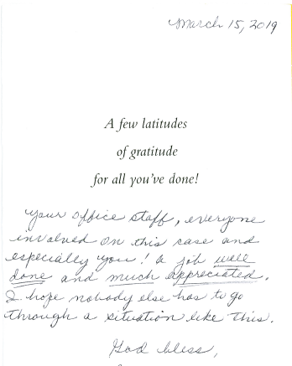 March 15, 2019
A few latitudes
of gratitude
for all you've done!
Your office staff, everyone
involved on this case and
especially you! A job well
done and much appreciated.
I hope nobody else has to go
through a situation like this.
God bless,